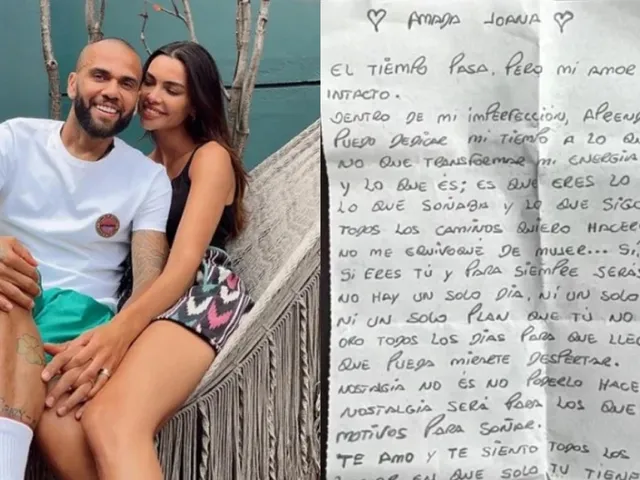 ♡ AMADA JOANA ♡
EL TIEMPO PASA, PERO MI AMOR
INTACTO.
DENTRO DE MI IMPERFECCIÓN, APREND
PUEDO DEDICAR MI TIEMPO A LO QU
NO QUE TRANSFORMAR MI ENERGIA
Y LO QUE ÉS; ES QUE ERES LO
LO QUE SOÑABA Y LO QUE SIGO
TODOS LOS CAMINOS QUIERO HACER
NO ME EQUIVOQUE DE MUJER... SI,
SI ERES TÚ Y PARA SIEMPRE SERÁ
NO HAY UN SOLO DIA, NI UN SOLO
NI UN SOLO PLAN QUE TÚ NO
ORO TODOS LOS DIAS PARA QUE LLEG
QUE PUEDA MIRARTE DESPERTAR.
NOSTALGIA NO ÉS NO PODERLO HACE
NOSTALGIA SERÁ PARA LOS QUE
MOTIVOS PARA SOÑAR.
TE AMO Y TE SIENTO TODOS LOS
EN QUE SOLO TU TIENE